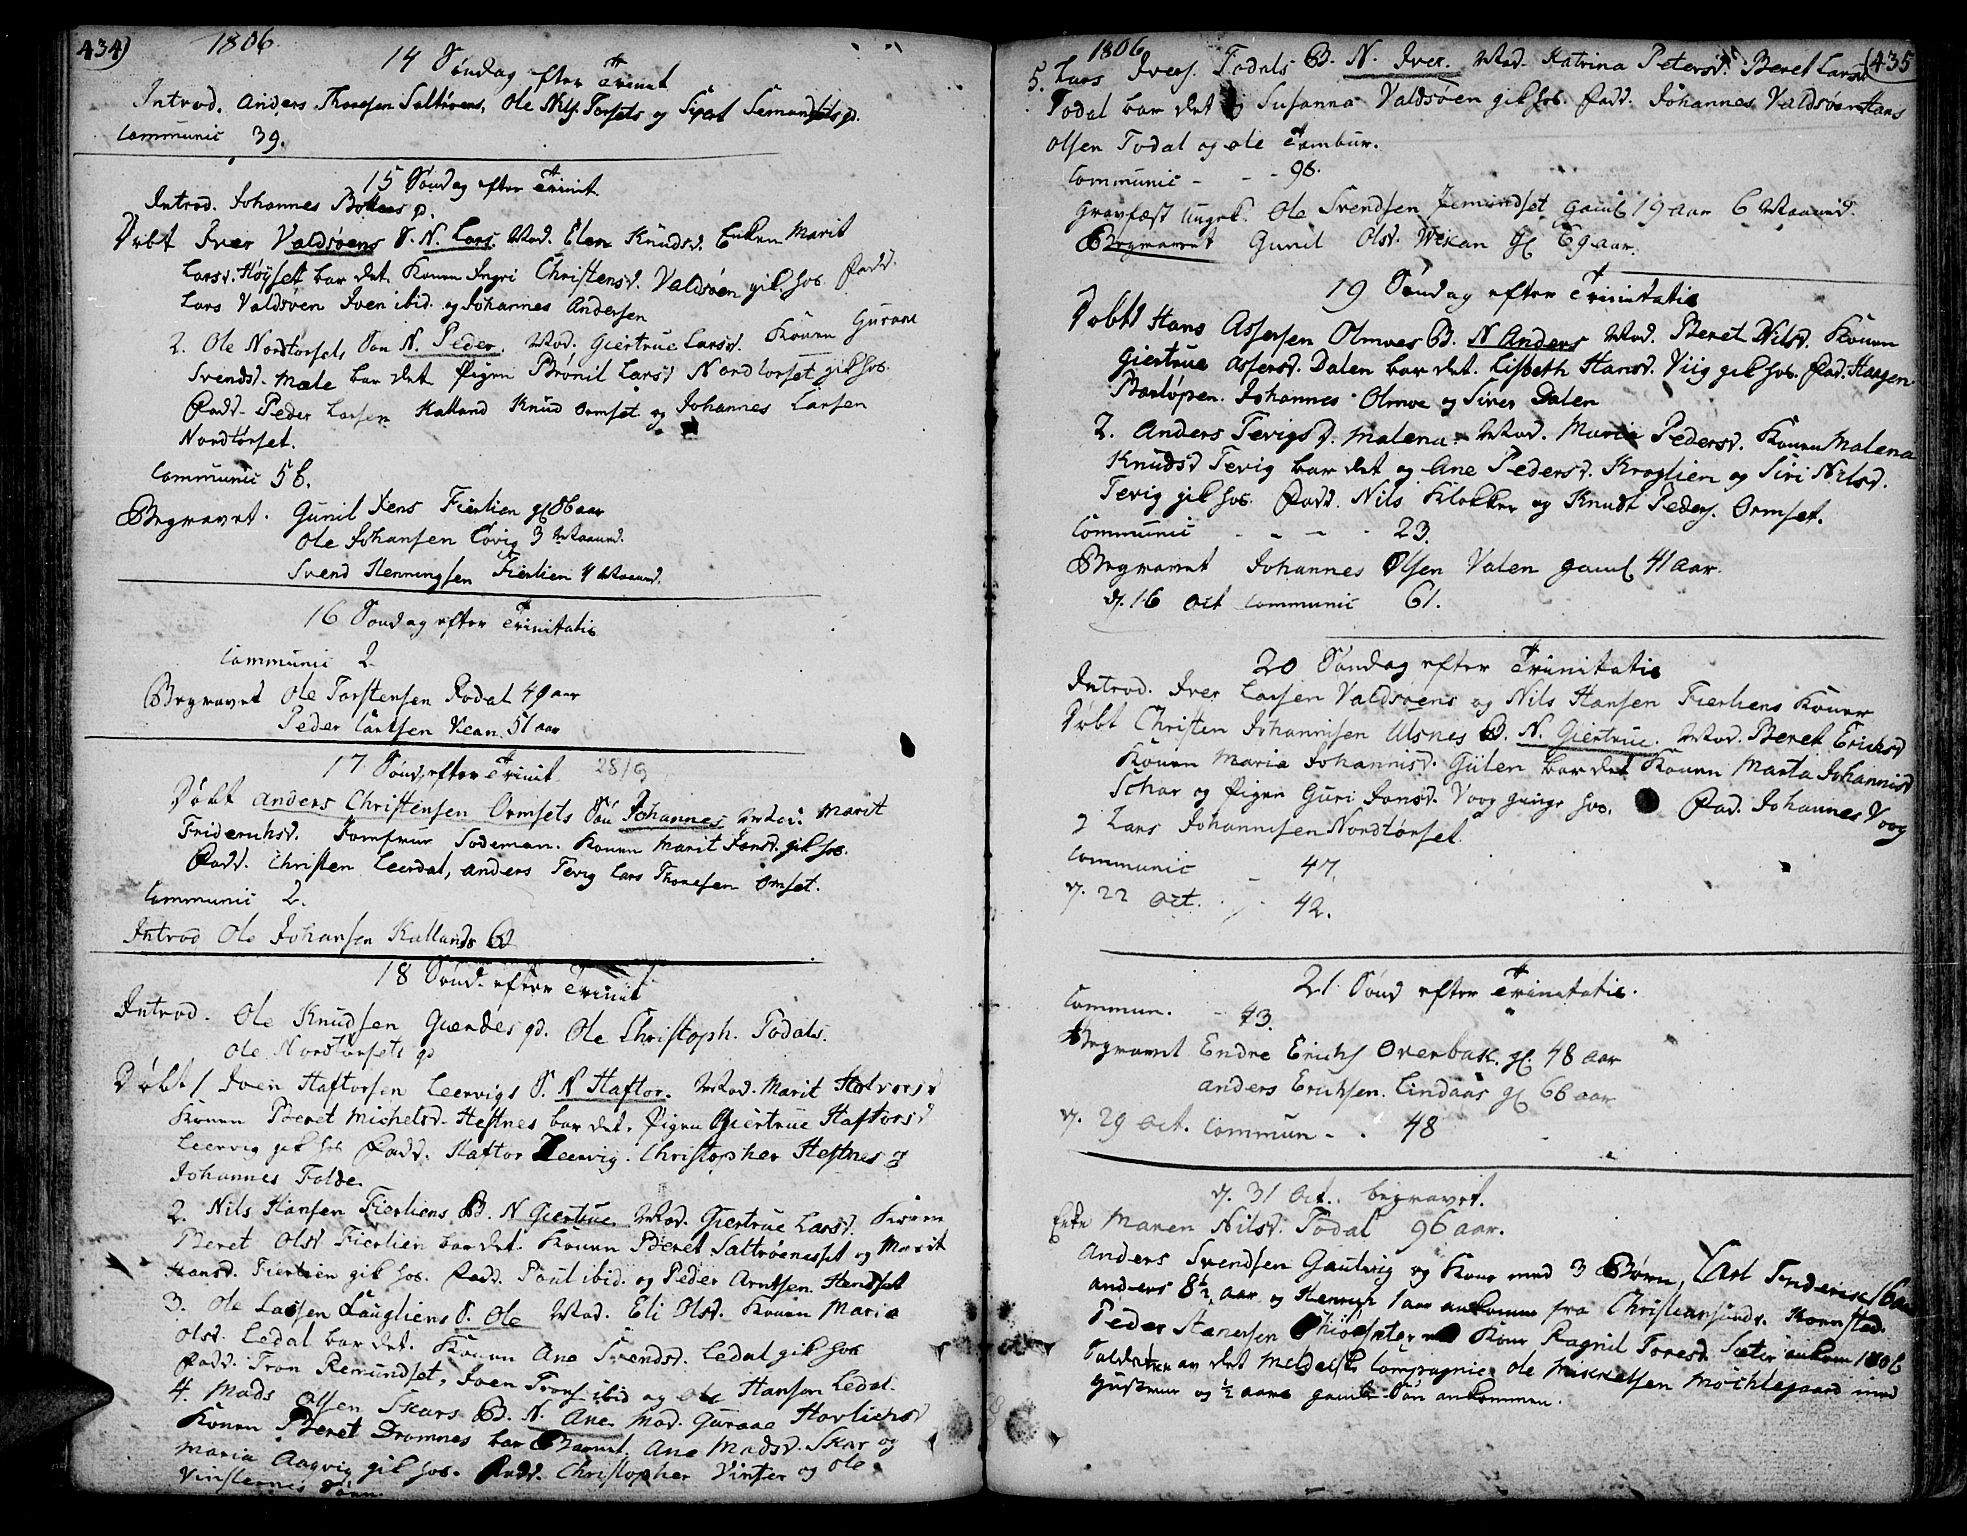 434) 1806.
14 Søndag efter Trinit
Introd. Anders Thoresen Saltrøens, Ole Nils. Torsets og Sivert
Communic 39.
15 Søndag efter Trinit.
Introd. Johannes
Døbt Iver Valdsøens S. N. Lars. Mod. Elen Knudsd. Enken Marit
Larsd. Høyset bar det. Konen Ingri Christensd. Valdsøen gik hos. Fadd.
Lars Valdsøen Iven ibid. og Johannes Andersen
2. Ole Nordtorsets Søn N. Peder. Mod. Giertrue Larsd. Konen Guraae
Svendsd. Mæle bar det Pigen Brønil Larsd Nordtorset gik hos.
Fadd. Peder Larsen Kalland Knud Ormset og Johannes Larsen
Nordtørset.
Communic 56.
Begravet. Gunil Jens Fierlien gl 86 aar
Ole Johansen Tøvig 3 Maaned.
Svend Henningsen Fierlien 4 Maaned.
16 Søndag efter Trinitatis
Communic 2
Begravet Ole Torstensen Rodal 49 aar
Peder Larsen 51 aar
17 Sønd. efter Trinit. 28/9
Døbt Anders Christensen Ormsets Søn Johannes Moder: Marit
Friderichsd. Jomfrue Sodeman. Konen Marit Jonsd. gik hos.
Fadd. Christen Leerdal, Anders Tevig Lars Thoresen Omset.
Communic 2.
Introd Ole Johansen Kallands
18 Sønd. efter Trinit
Introd. Ole Knudsen Giendes qd. Ole Christoph. Todals.
Ole Nordtorsets qd
Døbt 1 Iven Haftorsen Leervigs S. N Haftor. Mod. Marit Halvorsd
Konen Beret Michelsd. Hestnes bar det. Pigen Giertrue Haftorsd
Leervig gik hos Fadd. Haftor Leervig. Christopher Hestnes og
Johannes Folde.
2. Nils Hansen Fierliens B. N Giertrue Mod. Giertrue Larsd. Konen
Beret Olsd Fierlien bar det. Konen Beret Saltrøenesset og Marit
Hansd. Fierlien gik hos. Fadd. Poul ibid. og Peder Arntsen Hendset
3. Ole Larsen Laugliens S. Ole Mod. Eli Olsd. Konen Maria
Olsd. Ledal bar det. Konen Ane Svendsd. Ledal gik hos
Fadd. Tron Remundset, Iven Trons. ibid og Ole Hansen Ledal.
4. Mads Olsen Skars B. N. Ane. Mod. Guraae
Konen Beret Dromnes bar Barnet. Ane Madsd. Skar og
Maria Aagvig gik hos. Fadd. Christopher Vinter og Ole
1806. (435
5. Lars Ivers. Todals B. N. Iver. Mod. Katrina Petersd. Beret Larsd
Todal bar det og Susanna Valdsøen gik hos. Fadd. Johannes Valdsøen Hans
Olsen Todal og Ole Tambur.
Communic - - - 96.
Gravfæst Ungk. Ole Svendsen gaml 19 aar 6 Maaned.
Begravet Gunil Olsd. Wekan gl 69 aar.
19 Søndag efter Trinitatis
Døbt Hans Assersen Olmoes B. N Anders Mod. Beret Nilsd. Konen
Giertrue Assersd. Dalen bar det. Lisbeth Hansd. Viig gik hos. Fad. Haagen
Johannes Olmoe og Siver Dalen
2. Anders Tevigs d. Malena. Mod. Maria Pedersd. Konen Malena
Knudsd Tevig bar det og Ane Pedersd. Kroglien og Siri Nilsd.
Tevig gik hos. Fadd. Nils Klokker og Knudt Peders. Ormset.
Communic - - - - 23.
Begravet Johannes Olsen Valen gaml 41 aar.
d. 16 Oct Communic 61.
20 Søndag efter Trinitatis
Introd. Iver Larsen Valdsøens og Nils Hansen Fierliens Koner
Døbt Christen Johannisen Ulsnes B. N. Giertrue. Mod. Beret Erichsd
Konen Maria Johannisd. Gulen bar det Konen Marta Johannisd
Schar og Pigen Guri Jonsd. Voog ginge hos. Fad. Johannes Voog
2 Lars Johannisen Nordtørset
Communic - 47.
d. 22 Oct. - 42.
21. Sønd efter Trinitatis.
Commun. - 43.
Begravet Endre Erichs Overbak. gl. 48 aar
Anders Erichsen Lindaas gl 66 aar
d. 29 Oct. Commun - . 48
d. 31 Oct. begravet.
Enke Maren Nilsd. Todal 96 aar.
Anders Svendsen Gaulvig og Kone med 3 Børn, Carl Frederick
Anders 8½ aar og Henrich 1 aar ankomne fra Christiansund.
Peder Kone Ragnil Toresd. Sæter ankom 1806
af det Meldalske Compagnie. Ole Mikkelsen Mochlegaard med
Hustrue og ½ aars gaml Søn ankommen.